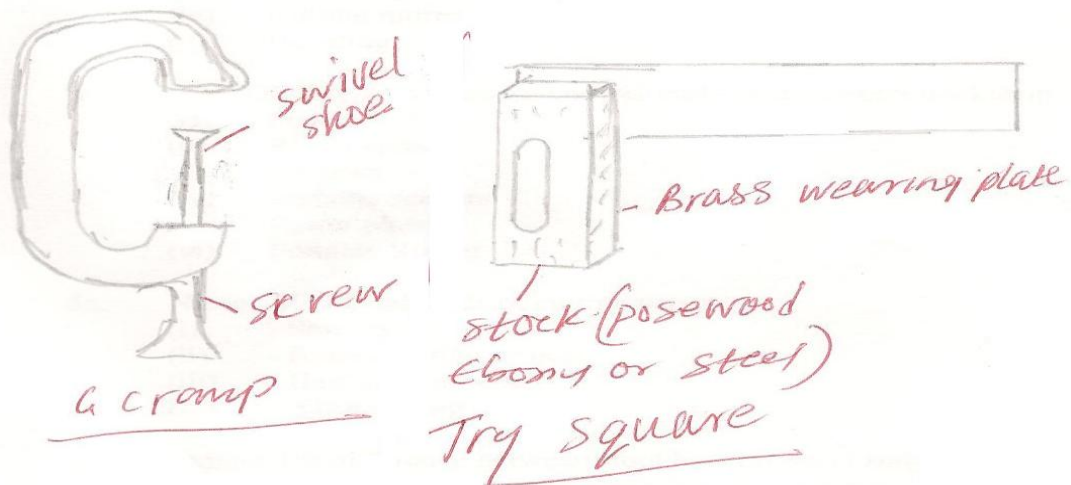 swivel
shoe
screw
G cramp
Brass wearing plate
stock (posewood
Ebony or steel)
Try square